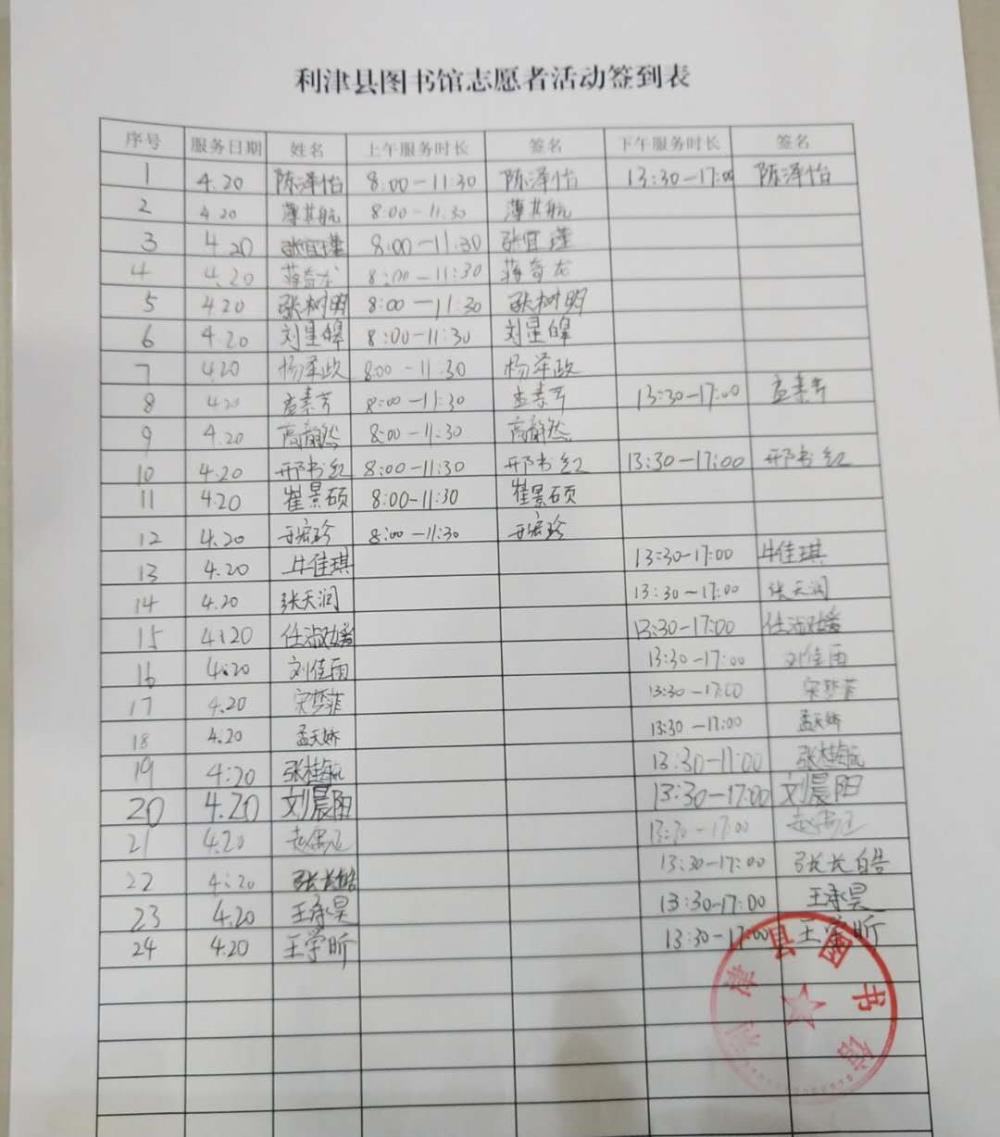 利津县图书馆志愿者活动签到表
序号 服务日期 姓名 上午服务时长 签名 下午服务时长 签名
1 4.20 陈泽怡 8:00-11:30 陈泽怡 13:30-17:00 陈泽怡
2 4.20 薄其航 8:00-11.30 薄其航
3 4.20 张宜瑾 8:00-11:30 张宜瑾
4 4.20 蒋奇龙 8:00-11:30 蒋奇龙
5 4.20 张树明 8:00-11:30 张树明
6 4.20 刘星皞 8:00-11:30 刘星皞
7 4.20 杨泽政 8:00-11:30 杨泽政
8 4.20 孟素芳 8:00-11:30 孟素芳 13:30-17:00 孟素芳
9 4.20 高靓然 8:00-11:30 高靓然
10 4.20 邢书红 8:00-11:30 邢书红 13:30-17:00 邢书红
11 4.20 崔景硕 8:00-11:30 崔景硕
12 4.20 8:00-11:30
13 4.20 牛佳琪 13:30-17:00 牛佳琪
14 4.20 张天润 13:30-17:00 张天润
15 4:20 任淑媛 13:30-17:00 任淑媛
16 4.20 刘佳雨 13:30-17:00 刘佳雨
17 4.20 宋梦菲 13:30-17:00 宋梦菲
18 4.20 孟天娇 13:30-17:00 孟天娇
19 4:20 张桂航 13:30-17:00 张桂航
20 4.20 刘晨阳 13:30-17:00 刘晨阳
21 4.20 13:30-17:00
22 4:20 张长皓 13:30-17:00 张长皓
23 4.20 王承昊 13:30-17:00 王承昊
24 4.20 王学昕 13:30-17:00 王学昕
利津县图书馆